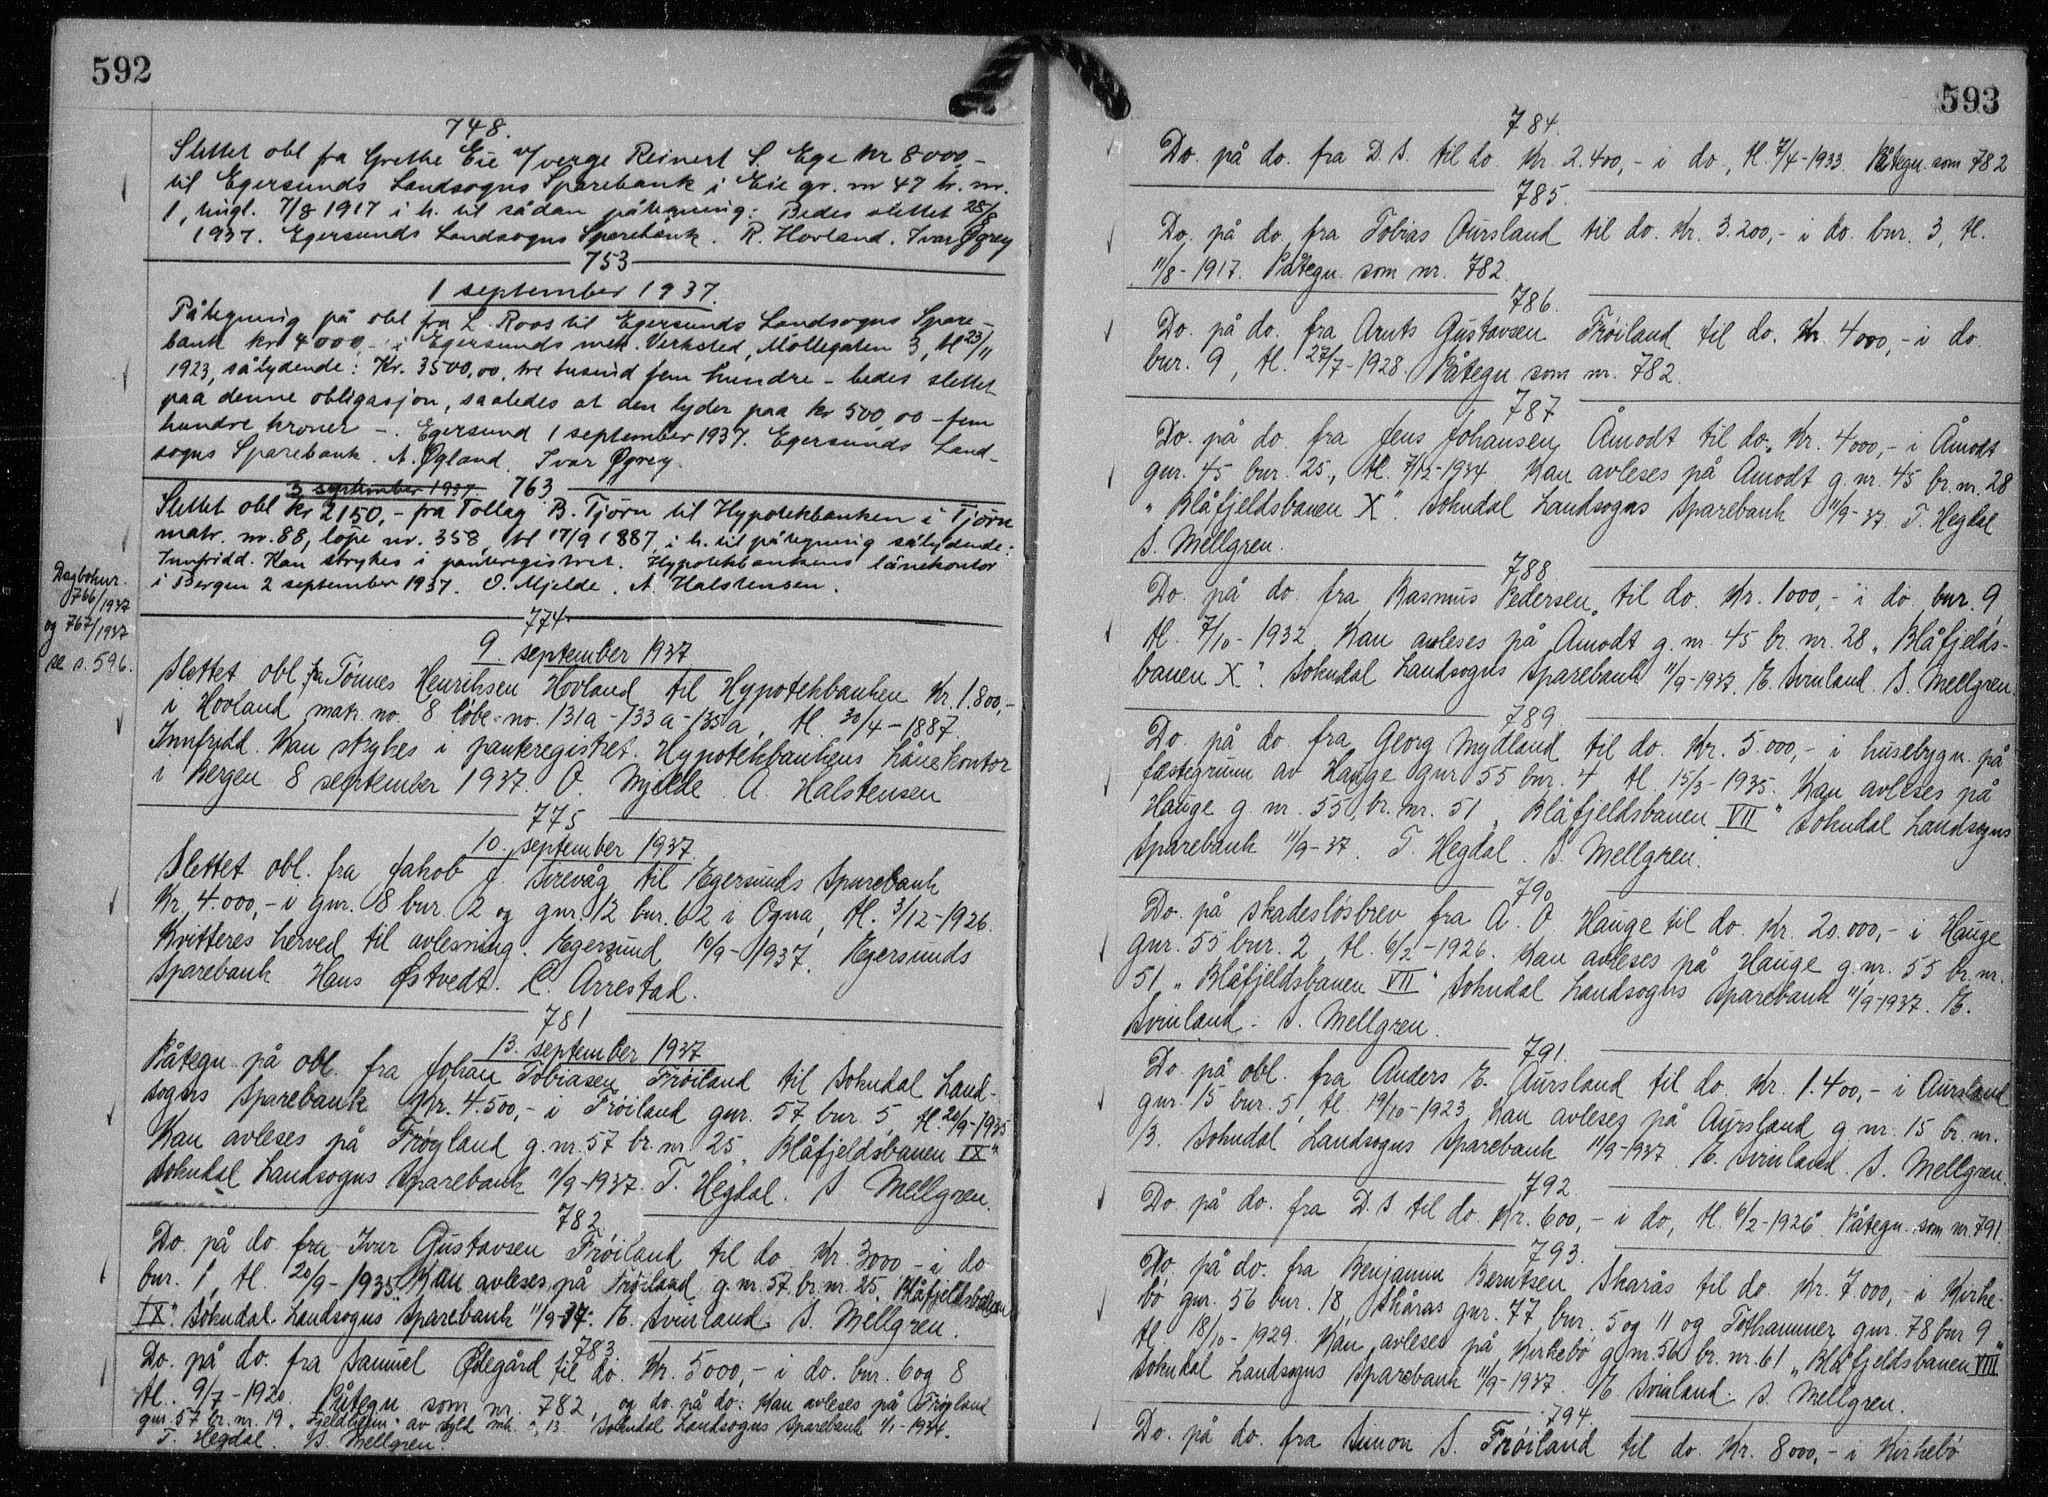 592
748.
Slettet obl fra Grethe Eie v/verge Reinert S. Ege kr 8000,-
til Egersunds Landsogns Sparebank i Eie gr. nr 47 br. nr.
1, tingl. 7/8 1917 i h. til sådan påtegning: Bedes slettet 28/8
1937. Egersunds Landsogns Sparebank. R. Hovland. Ivar Øgrey
753
1 september 1937.
Påtegning på obl fra L. Roos til Egersunds Landsogns Spare-
bank kr 4000,- i Egersunds mek. Verksted, Möllegaten 3, tl 23/11
1923, sålydende: Kr. 3500,00, tre tusind fem hundre - bedes slettet
paa denne obligasjon, saaledes at den lyder paa kr 500,00 - fem
hundre kroner -. Egersund 1 september 1937. Egersunds Land-
sogns Sparebank. A. Øgland. Ivar Øgrey.
3 september 1937. 763
Slettet obl kr 2150,- fra Tollag B. Tjörn til Hypotekbanken i Tjörn
matr. nr. 88, löpe nr. 358, tl 17/9 1887, i h. til påtegning sålydende:
Innfridd. Kan strykes i panteregistret. Hypotekbankens lånekontor
i Bergen 2 september 1937. O. Mjelde. A. Halstensen.
Dagboknr.
766/1937
og 767/1937
se s. 596.
774
9. september 1937
Slettet obl. fra Tönnes Henriksen Hovland til Hypotekbanken Kr. 1.800,-
i Hovland matr. no. 8 löbe-no. 131a-133a-135a, tl. 30/4-1887.
Innfridd. Kan strykes i panteregistret. Hypotekbankens Lånekontor
i Bergen 8 september 1937. O. Mjelde. A. Halstensen
775
10. september 1937
Slettet obl. fra Jakob J. Sirevåg til Egersunds Sparebank
Kr. 4.000,- i gnr. 8 bnr. 2 og gnr. 12 bnr. 62 i Ogna, tl. 3/12-1926.
Kvitteres herved til avlesning. Egersund 10/9-1937. Egersunds
Sparebank Hans Østvedt. C. Årrestad.
781
13. september 1937
Påtegn. på obl. fra Johan Tobiasen Fröiland til Sokndal Land-
sogns Sparebank Kr. 4.500,- i Fröiland gnr. 57 bnr. 5, tl. 20/9-1935
Kan avleses på Fröyland g.nr. 57 br. nr 25 „Blåfjeldsbanen IX"
Sokndal Landsogns Sparebank 11/9-1937. T. Hegdal. S. Mellgren.
782.
Do. på do. fra Ivar Gustavsen Fröiland til do. Kr. 3000,- i do
bnr. 1, tl. 20/9-1935. Kan avleses på Fröiland g.nr. 57 br. nr. 25 „Blåfjeldsbanen
IX". Sokndal Landsogns Sparebank 11/9-37. E. Svinland. S. Mellgren.
783
Do. på do. fra Samuel Ødegård til do. Kr. 5000,- i do. bnr. 6 og 8
tl. 9/7-1920 Påtegn. som nr. 782 og do. på do: Kan avleses på Fröyland
gnr. 57 br. nr. 19 „Fjeldheim" av
Sokndal Landsogns Sparebank
T. Hegdal. S. Mellgren.
593
784.
Do. på do. fra D.S. til do. Kr. 2.400,- i do., tl. 7/4-1933. Påtegn. som 782
785.
Do. på do. fra Tobias Aursland til do. Kr. 3.200,- i do. bnr. 3, tl.
11/8-1917. Påtegn. som nr. 782.
786.
Do. på do. fra Arnts Gustavsen Fröiland til do. Kr. 4000,- i do.
bnr. 9, tl. 27/7-1928. Påtegn. som nr. 782.
787
Do. på do. fra Jens Johansen Åmodt til do. Kr. 4000,- i Åmodt
gnr. 45 bnr. 25, tl. 7/12-1934 Kan avleses på Åmodt g.nr. 45 br. nr. 28
„Blåfjeldsbanen X". Sokndal Landsogns Sparebank 11/9-37 T. Hegdal
S. Mellgren.
788.
Do. på do. fra Rasmus Pedersen til do. Kr. 1000,- i do. bnr. 9,
tl. 7/10-1932 Kan avleses på Åmodt g.nr. 45 br. nr. 28 „Blåfjelds-
banen X". Sokndal Landsogns Sparebank 11/9-1937. E. Svinland. S. Mellgren.
789.
Do. på do. fra Georg Mydland til do. Kr. 5.000,- i husebygn. på
festegrunn av Hauge gnr 55 bnr. 4 tl 15/3-1935. Kan avleses på
Hauge g.nr. 55 br. nr. 51 „Blåfjeldsbanen VII" Sokndal Landsogns
Sparebank 11/9-37. T. Hegdal. S. Mellgren.
790
Do. på skadeslösbrev fra A. O. Hauge til do. Kr. 20.000,- i Hauge
gnr. 55 bnr. 2, tl. 6/2-1926. Kan avleses på Hauge g.nr. 55 br. nr.
51 „Blåfjeldsbanen VII" Sokndal Landsogns Sparebank 11/9-1937. E.
Svinland. S. Mellgren.
791.
Do. på obl. fra Anders E. Aursland til do. Kr. 1.400,- i Aursland
gnr. 15 bnr. 5, tl. 19/10-1923, Kan avleses på Aursland g.nr. 15 br. nr.
13. Sokndal Landsogns Sparebank 11/9-1937 E. Svinland. S. Mellgren.
792
Do. på do. fra D.S. til do. Kr. 600,- i do, tl. 6/2-1926. Påtegn. som nr. 791.
793.
Do. på do. fra Benjamin Berntsen Skarås til do. Kr. 7.000,- i Kirke-
bö gnr. 56 bnr. 18, Skåras gnr. 77 bnr. 5 og 11 og Tothammer gnr. 78 bnr 9
tl. 18/10-1929. Kan avleses på Kirkebö g.nr. 56 br. nr. 61 „Blåfjeldsbanen VIII"
Sokndal Landsogns Sparebank 11/9-1937. E. Svinland. S. Mellgren.
794.
Do. på do. fra Simon S. Fröiland til do. Kr. 8000,- i Kirkebö